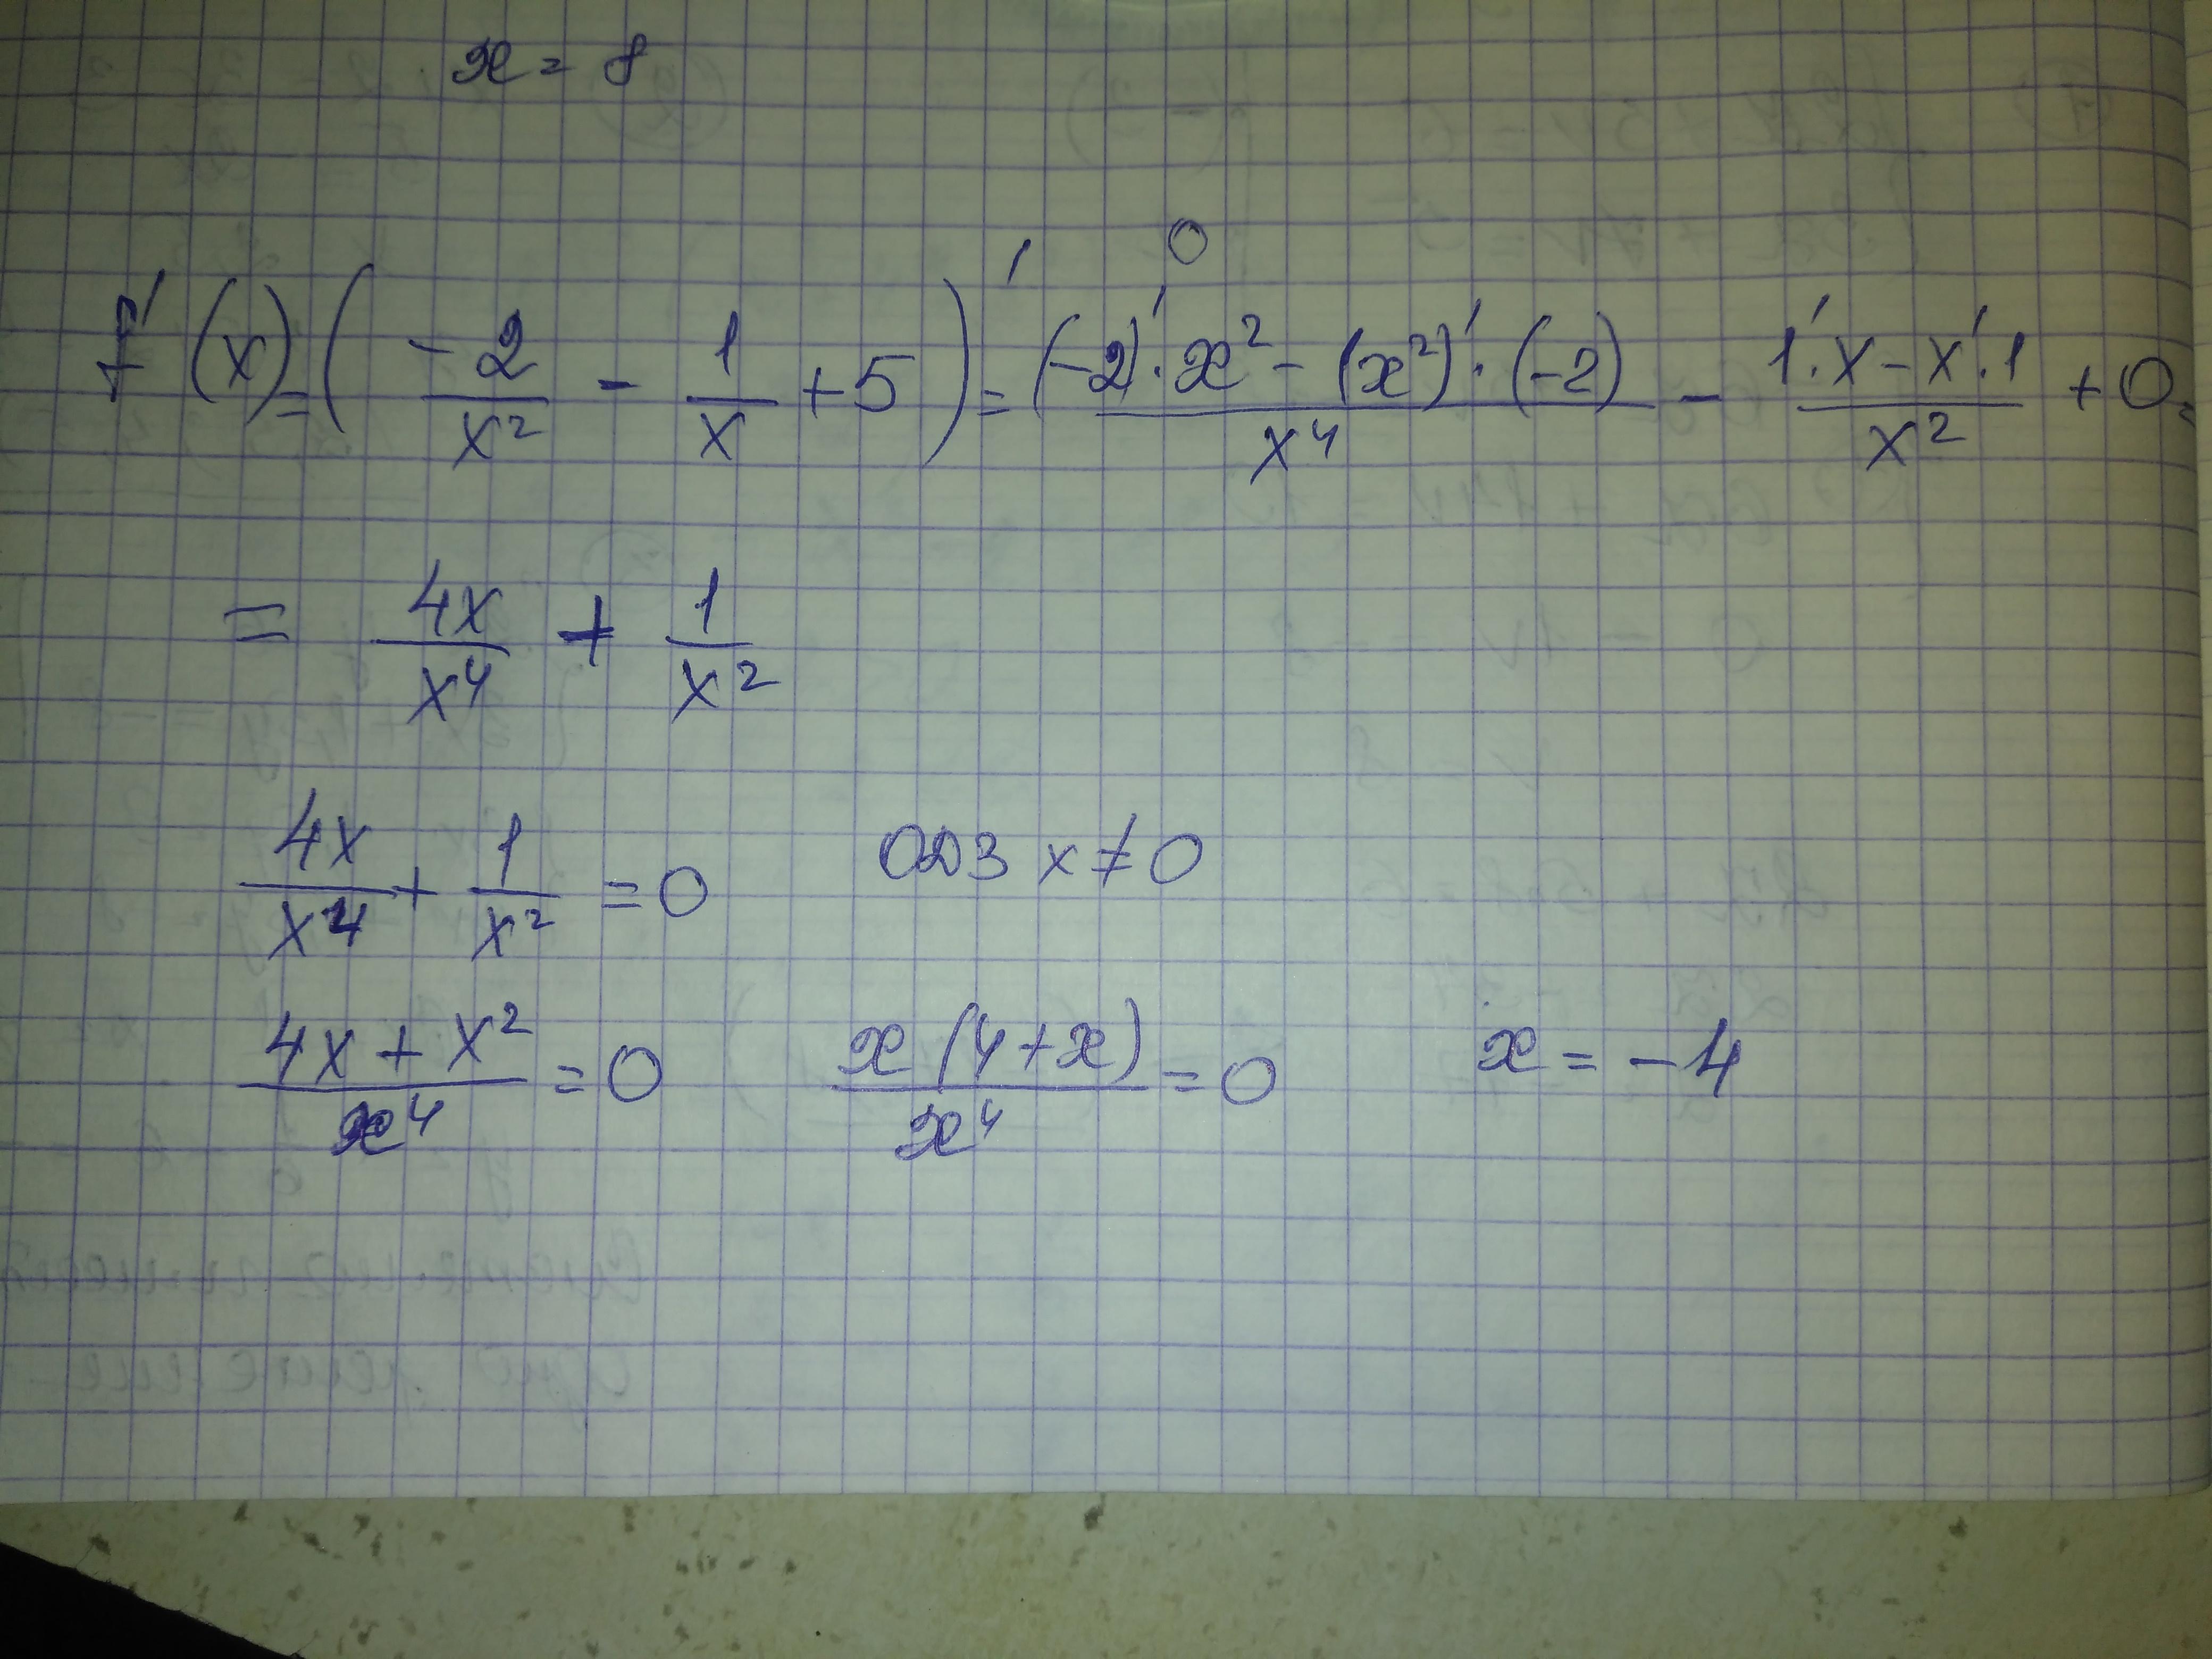 x = 8
0
f'(x) = (-2/x² - 1/x + 5)' = ((-2)'·x² - (x²)'·(-2))/x⁴ - (1'·x - x'·1)/x² + 0 =
= 4x/x⁴ + 1/x²
4x/x⁴ + 1/x² = 0 ОДЗ x ≠ 0
(4x + x²)/x⁴ = 0 x(4+x)/x⁴ = 0 x = -4